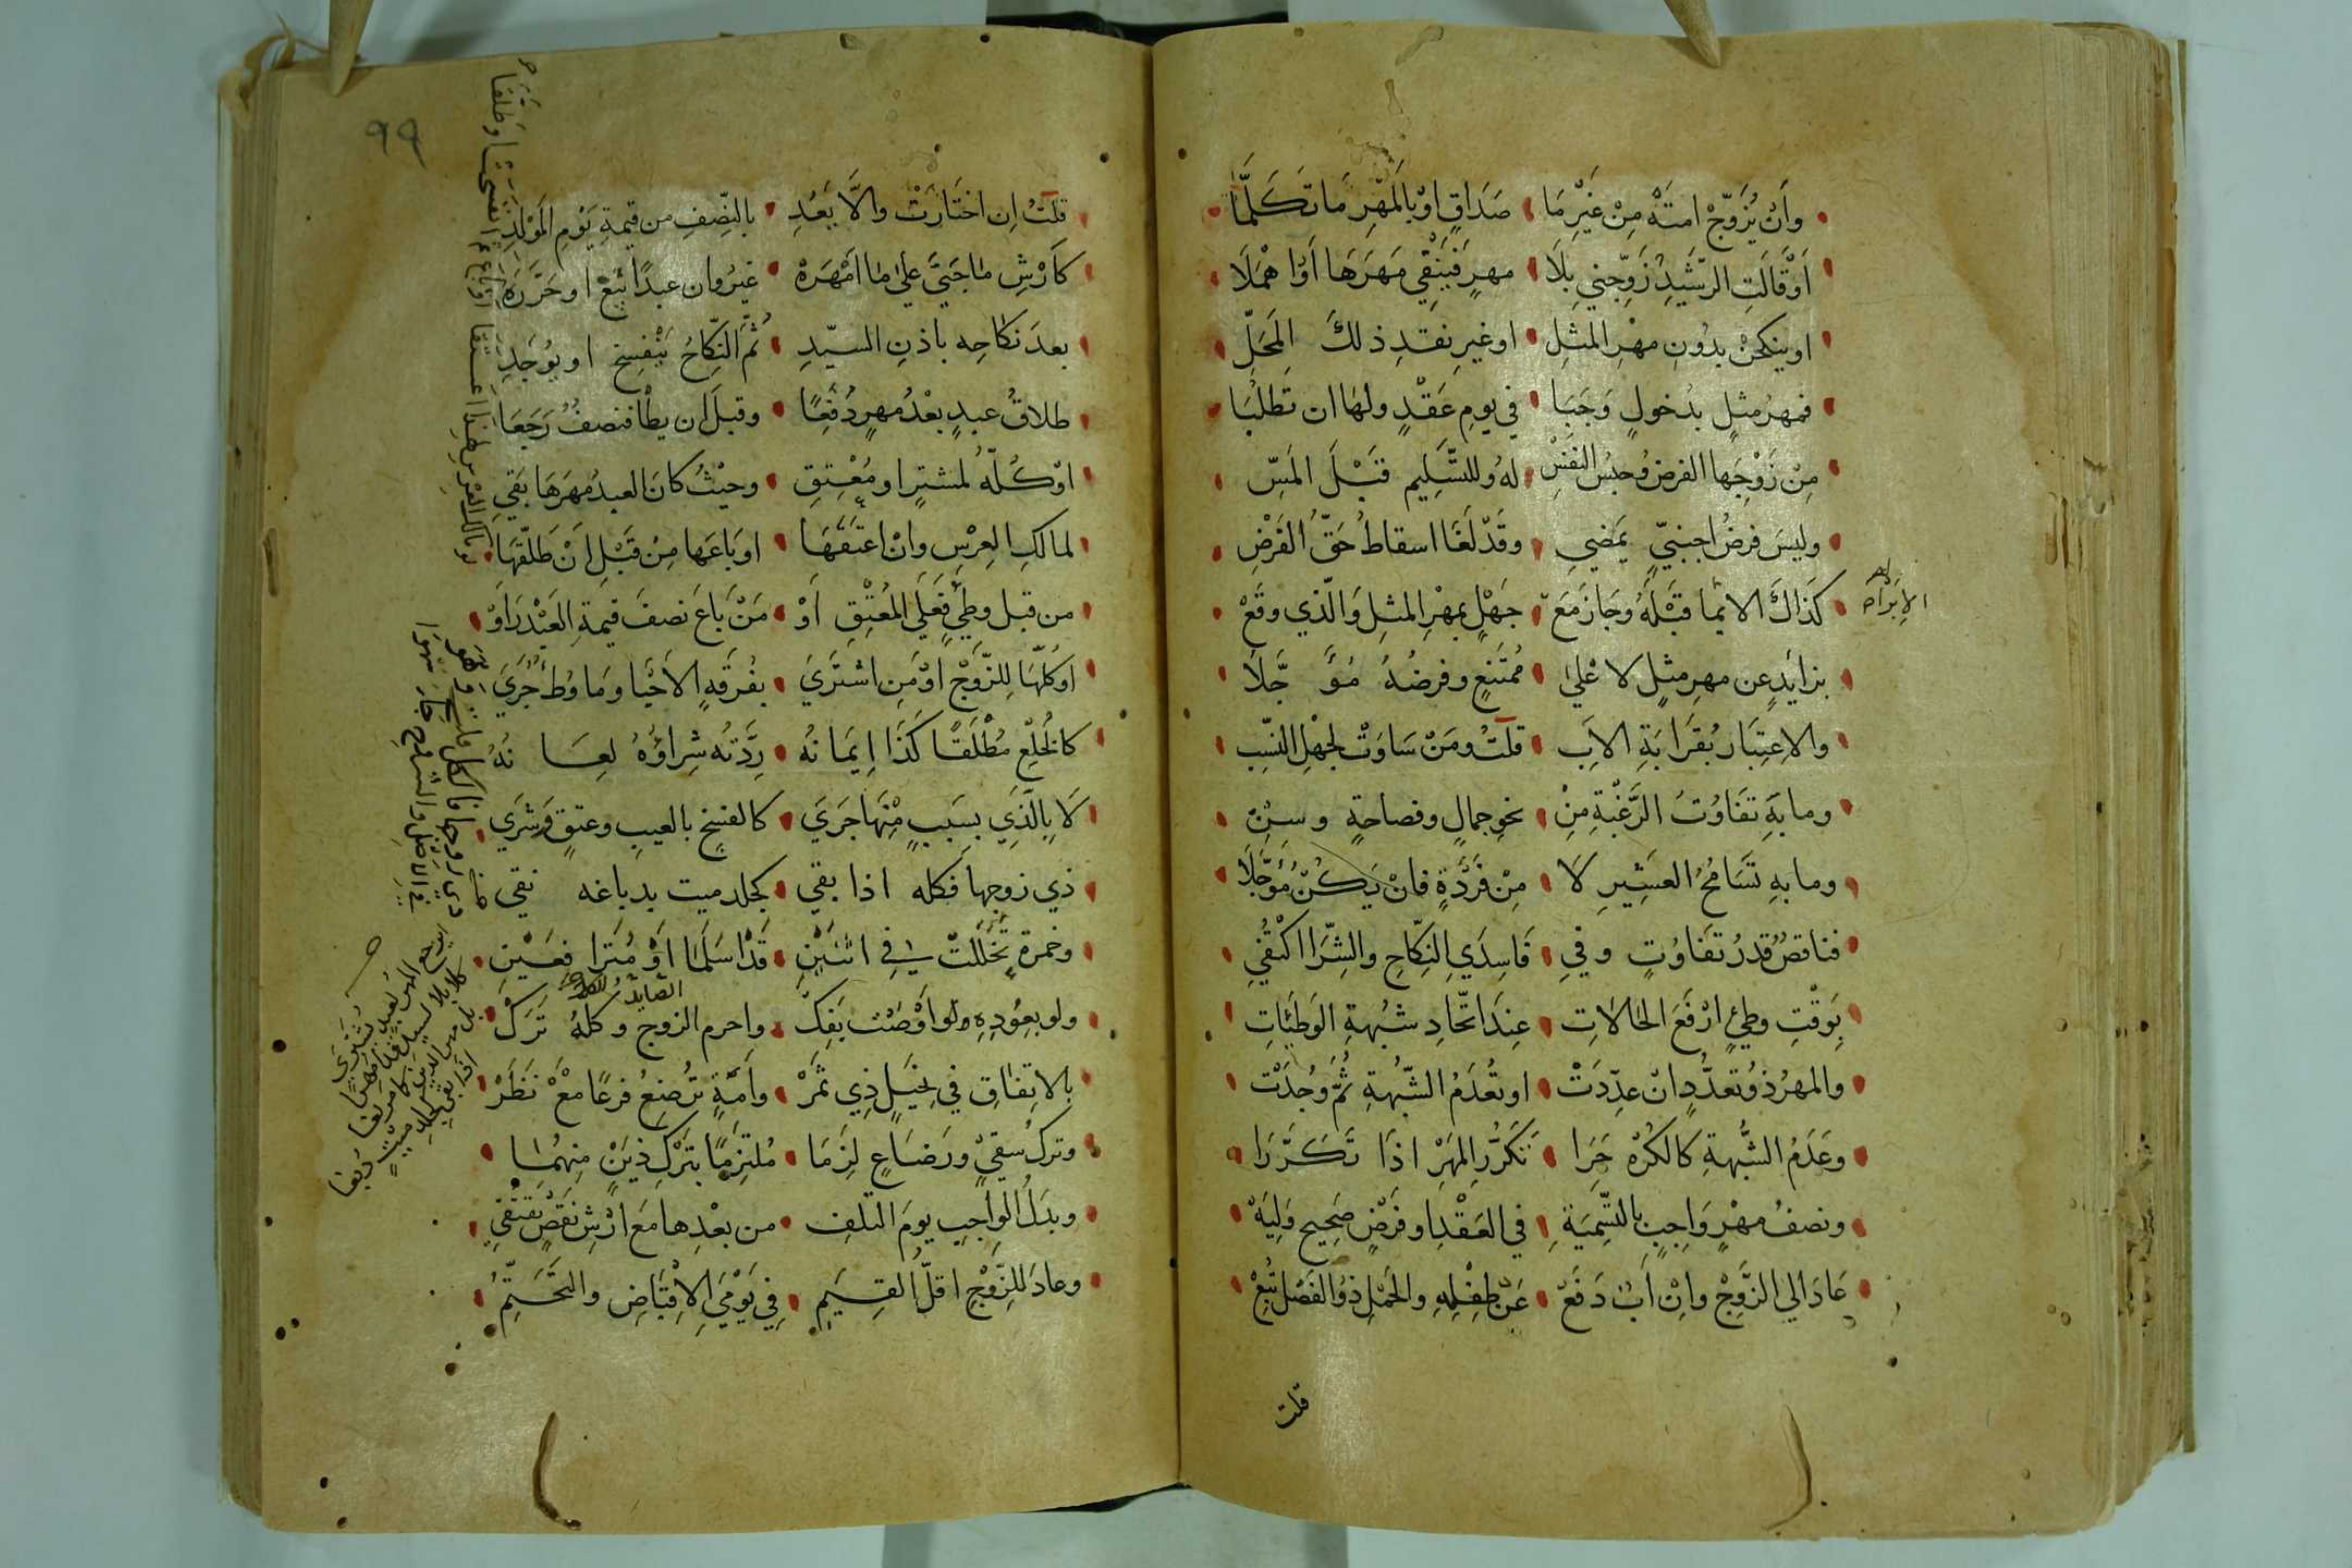 وَأَنْ يُزَوِّجْ امتَهْ مِنْ غَيْرِ مَا صَدَاقٍ اوْ بِالمَهْرِ مَا تَكَلَّمَا
أَوْ قَالَتِ الرَّشِيدُ زَوِّجْنِي بِلَا مهرٍ فَيَنْفِي مَهرَهَا أَوْ اهْمَلَا
او ينكحنْ بدُونِ مهْرِ المثلِ او غيرِ نقدِ ذلكَ المَحَلِّ
فمهرُ مثلٍ بدخولٍ وَجَبَا في يومِ عَقْدٍ ولها ان تَطلُبَا
مِنْ زَوْجِهَا الفرضَ وحبسُ النفسِ لهُ وللتسْلِيمِ قَبْلَ المَسِّ
وليسَ فرضُ اجنبيٍّ يَمضِي وقَدْ لَغَا اسقاطُ حَقِّ الفَرْضِ
كَذَاكَ الابما قَبْلَهُ وجَازَ مَعَ جَهْلٍ بمهْرِ المثلِ وَالَّذي وقَعْ
الابرَاء
بزايدٍ عن مهرِ مثلٍ لا عَلى مُمتَنعٍ وفرضُهُ مُؤَجَّلَا
والاعتِبَارُ بقَرَابَةِ الاَبِ قلتُ ومَنْ سَاوَتْ لجهْلِ النسَبِ
وما بهِ تَفَاوُتُ الرَّغْبَةِ مِنْ نحوِ جمالٍ وفصاحةٍ وسِنْ
وما بهِ تَسَامُحُ العَشِيرِ لَا مِنْ فَرْدَةٍ فانْ يَكُنْ مُؤَجَّلَا
فناقصٌ قدرُ تفاوُتٍ وفي فَاسِدَيِ النِّكَاحِ والشِّرَا اكْتُفِي
بِوَقْتِ وطيٍ ارْفَعَ الحالاتِ عِندَ اتّحَادِ شُبهةِ الوَطَيَاتِ
والمهرُ ذو تعدُّدٍ ان عدِّدَتْ او تُعدَمُ الشُّبهةِ ثُمَّ وُجِدَتْ
وَعَدَمُ الشُّبهةِ كالكُرْهِ جَرَا تَكَرُّرُ المهْرِ اذَا تَكَرَّرَا
ونصفُ مهْرٍ وَاجِبٍ بالتسْمِيَةِ في العَقْدِ او فَرْضٍ صَحِيحٍ وَلِيَهْ
عَادَ الى الزَّوْجِ وانْ أبٌ دَفَعْ عَنْ طفلِهِ والحملِ ذو الفَصْلِ تَبِعْ
قلت
٩٩
قلتُ اِن اختَارَتْ والَّا يَعُدِ بالنِّصفِ من قيمةِ يَوْمِ المَوْلِدِ
كأَرْشِ ما جَنَى على ما امْهَرَهْ غيرُ وان عبدًا يَبِعْ او حَرَّرَهْ
بعدَ نكاحِه باذنِ السيّدِ ثُمَّ النِّكاحُ يَنْفسِخ او يُوجَدِ
طلاقُ عبدٍ بعْدُ مهرٍ دُفعَا وقبلَ ان يطا فنصفٌ رَجَعَا
اوْ كُلُّهُ لمشترٍ او مُعْتِقِ وحيْثُ كانَ العبدُ مهرَهَا بَقِي
لمالكِ العِرْسِ وانْ اعتَقَهَا او بَاعَهَا مِنْ قَبْلِ انْ طَلَّقَهَا
من قبلِ وطيٍ فَعَلَى المُعتِقِ أَوْ مَنْ بَاعَ نصفَ قيمةِ العَبْدِ رَأَوْ
او كُلَّهَا للزَّوْجِ اوْ مَنِ اشتَرَى بفُرقَةِ الاَحْيَا ومَا وطءٌ جَرَى
كالخُلعِ مُطْلَقًا كَذَا اِيمَانُهُ رِدَّتُه شِراؤُهُ لعَانُهُ
لَا بِالَّذِي بسَبَبٍ مِنْهَا جَرَى كالفسخِ بالعيبِ وعتقٍ وَشِرَى
ذي زوجها فكله اذا بقي كجلد ميت بدباغه نقي
وخمرةٍ تَخَلَّلَتْ في اثنَيْنِ قَدْ اسلَمَا اوْ مُترا فعَيْنِ
ولو بعودِهِ ولو اوْصَت يَفكّ واحرم الزوج وكلهُ تَرَكْ
بالاتفاقِ في نخيلٍ ذِي ثَمَرْ وأَمَةٍ تُرضِعُ فرعًا مَعْ نَظَرْ
وتركُ سقيٍ ورَضَاعٍ لزَمَا مُلتزِمًا بتَرْكِ ذَيْنِ مِنهُمَا
وبدَلُ الوَاجِبِ يومَ التلفِ من بعْدِها مَعَ ارْشِ نَقصٍ تقتَفي
وعادَ للزَّوْجِ اقلُّ القِيَمِ في يَوْمَيِ الاِقْبَاضِ والتَّحَتُّمِ